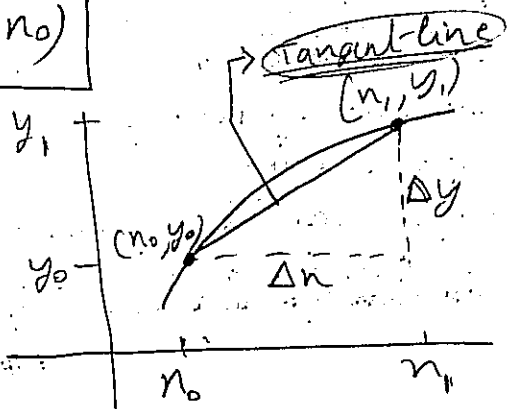 n₀)
Tangent-line
(n₁, y₁)
y₁
Δy
(n₀, y₀)
y₀
Δn
n₀
n₁